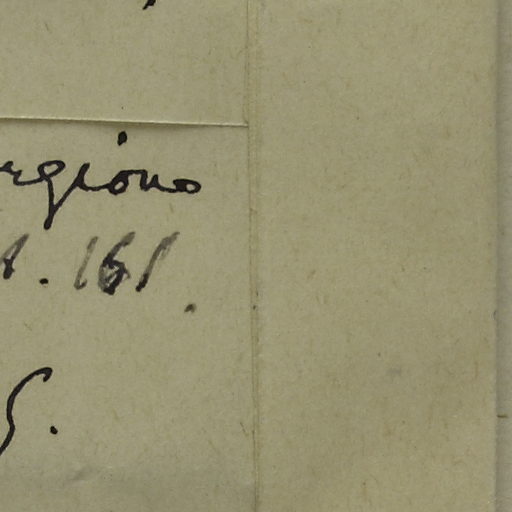 rgiono
. 161.
S.